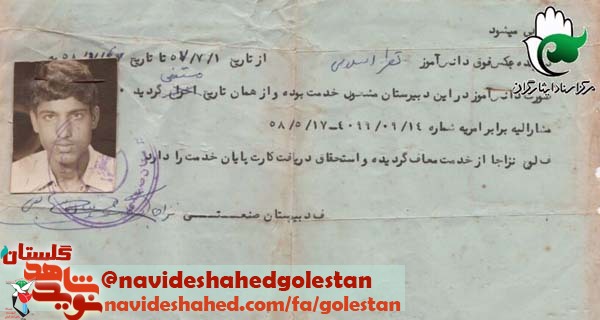 مرکز اسناد ایثارگران
از تاریخ ۵۷/۷/۱ تا تاریخ
عکس فوق دانش آموز
مستعفی
دانش آموز در این دبیرستان مشغول خدمت بوده و از همان تاریخ اخراج گردید
مشارالیه برابر امریه شماره ۵۸/۵/۱۷-۴۰۹۹/۰۹/۱۴
نزاجا از خدمت معاف گردیده و استحقاق دریافت کارت پایان خدمت را دارد.
ف دبیرستان صنعتی نزاجا
گلستان
نوید شاهد
@navideshahedgolestan
navideshahed.com/fa/golestan